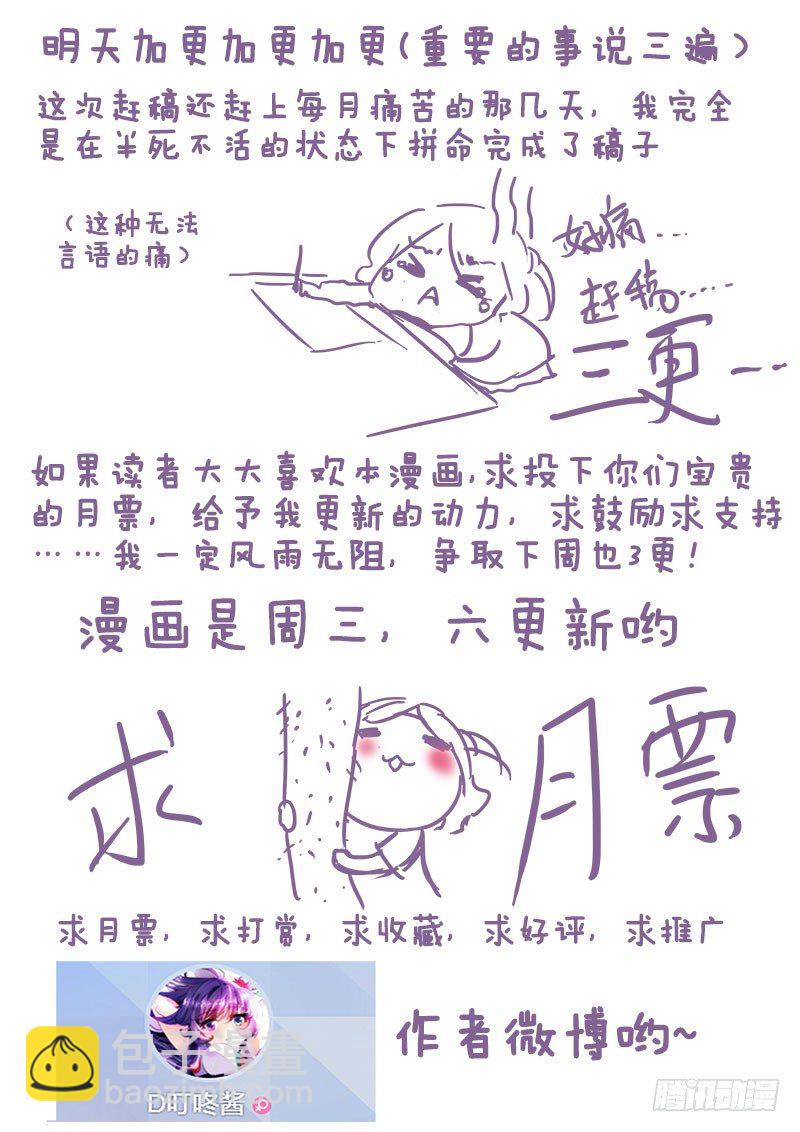 明天加更加更加更(重要的事说三遍)
这次赶稿还赶上每月痛苦的那几天,我完全
是在半死不活的状态下拼命完成了稿子
(这种无法
言语的痛)
好痛...
赶稿......
三更---
如果读者大大喜欢本漫画,求投下你们宝贵
的月票,给予我更新的动力,求鼓励求支持
……我一定风雨无阻,争取下周也3更!
漫画是周三,六更新哟
求 月票
求月票,求打赏,求收藏,求好评,求推广
作者微博哟~
包子漫畫
baozimh.com
D叮咚酱
腾讯动漫